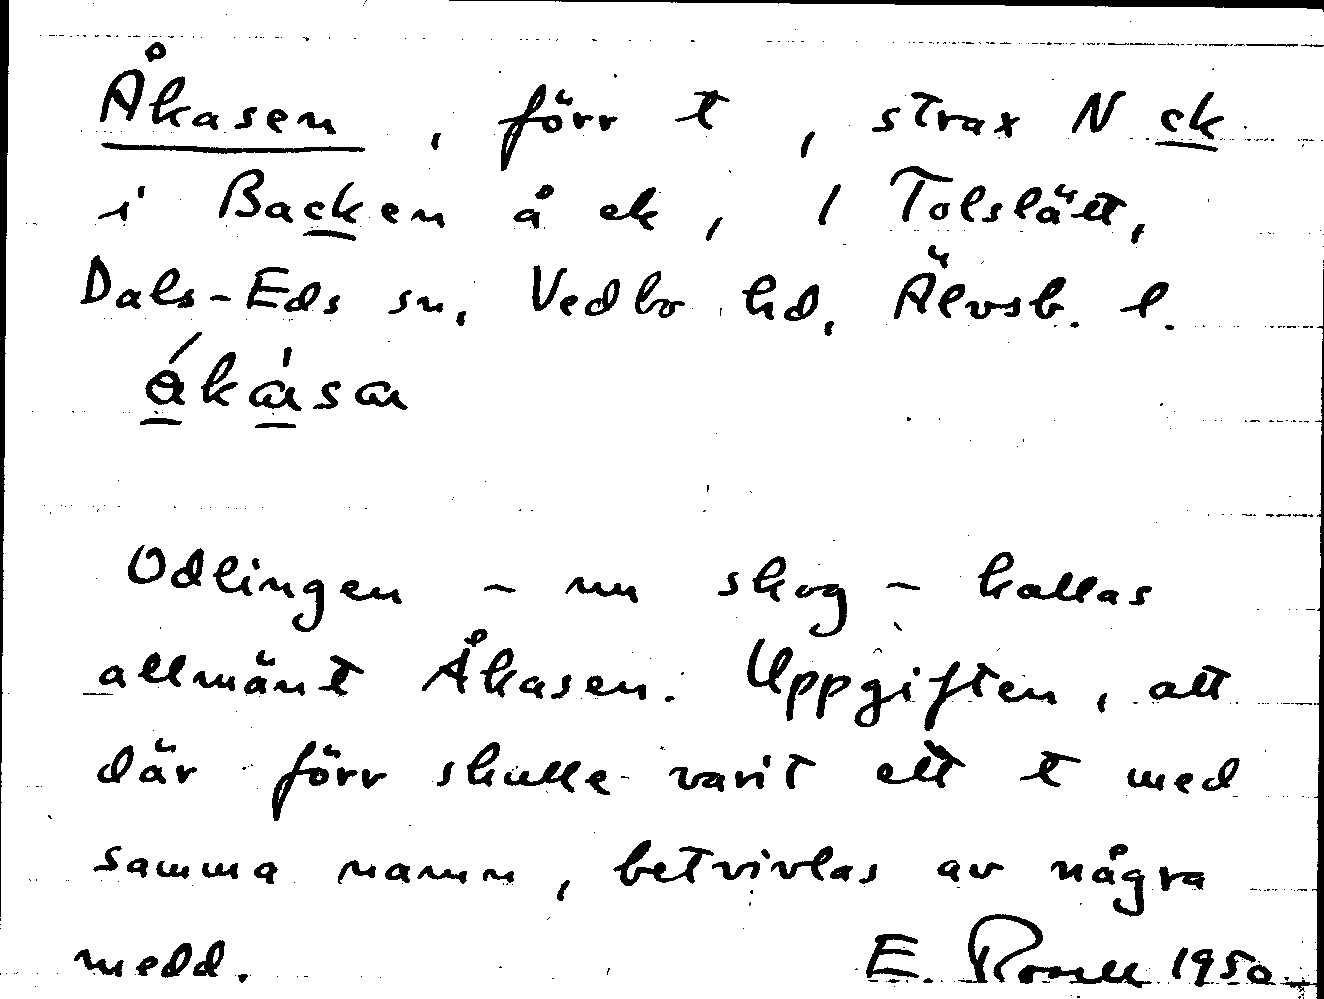 Åkasen, förr t, strax N ck
i Backen å ek, 1 Tolslätt,
Dals-Eds sn, Vedbo hd, Älvsb. l.
Odlingen - nu skog - kallas
allmänt Åkasen. Uppgiften, att
där förr skulle varit ett t med
samma namn, betvivlas av några
medd. E. Rosell 1950